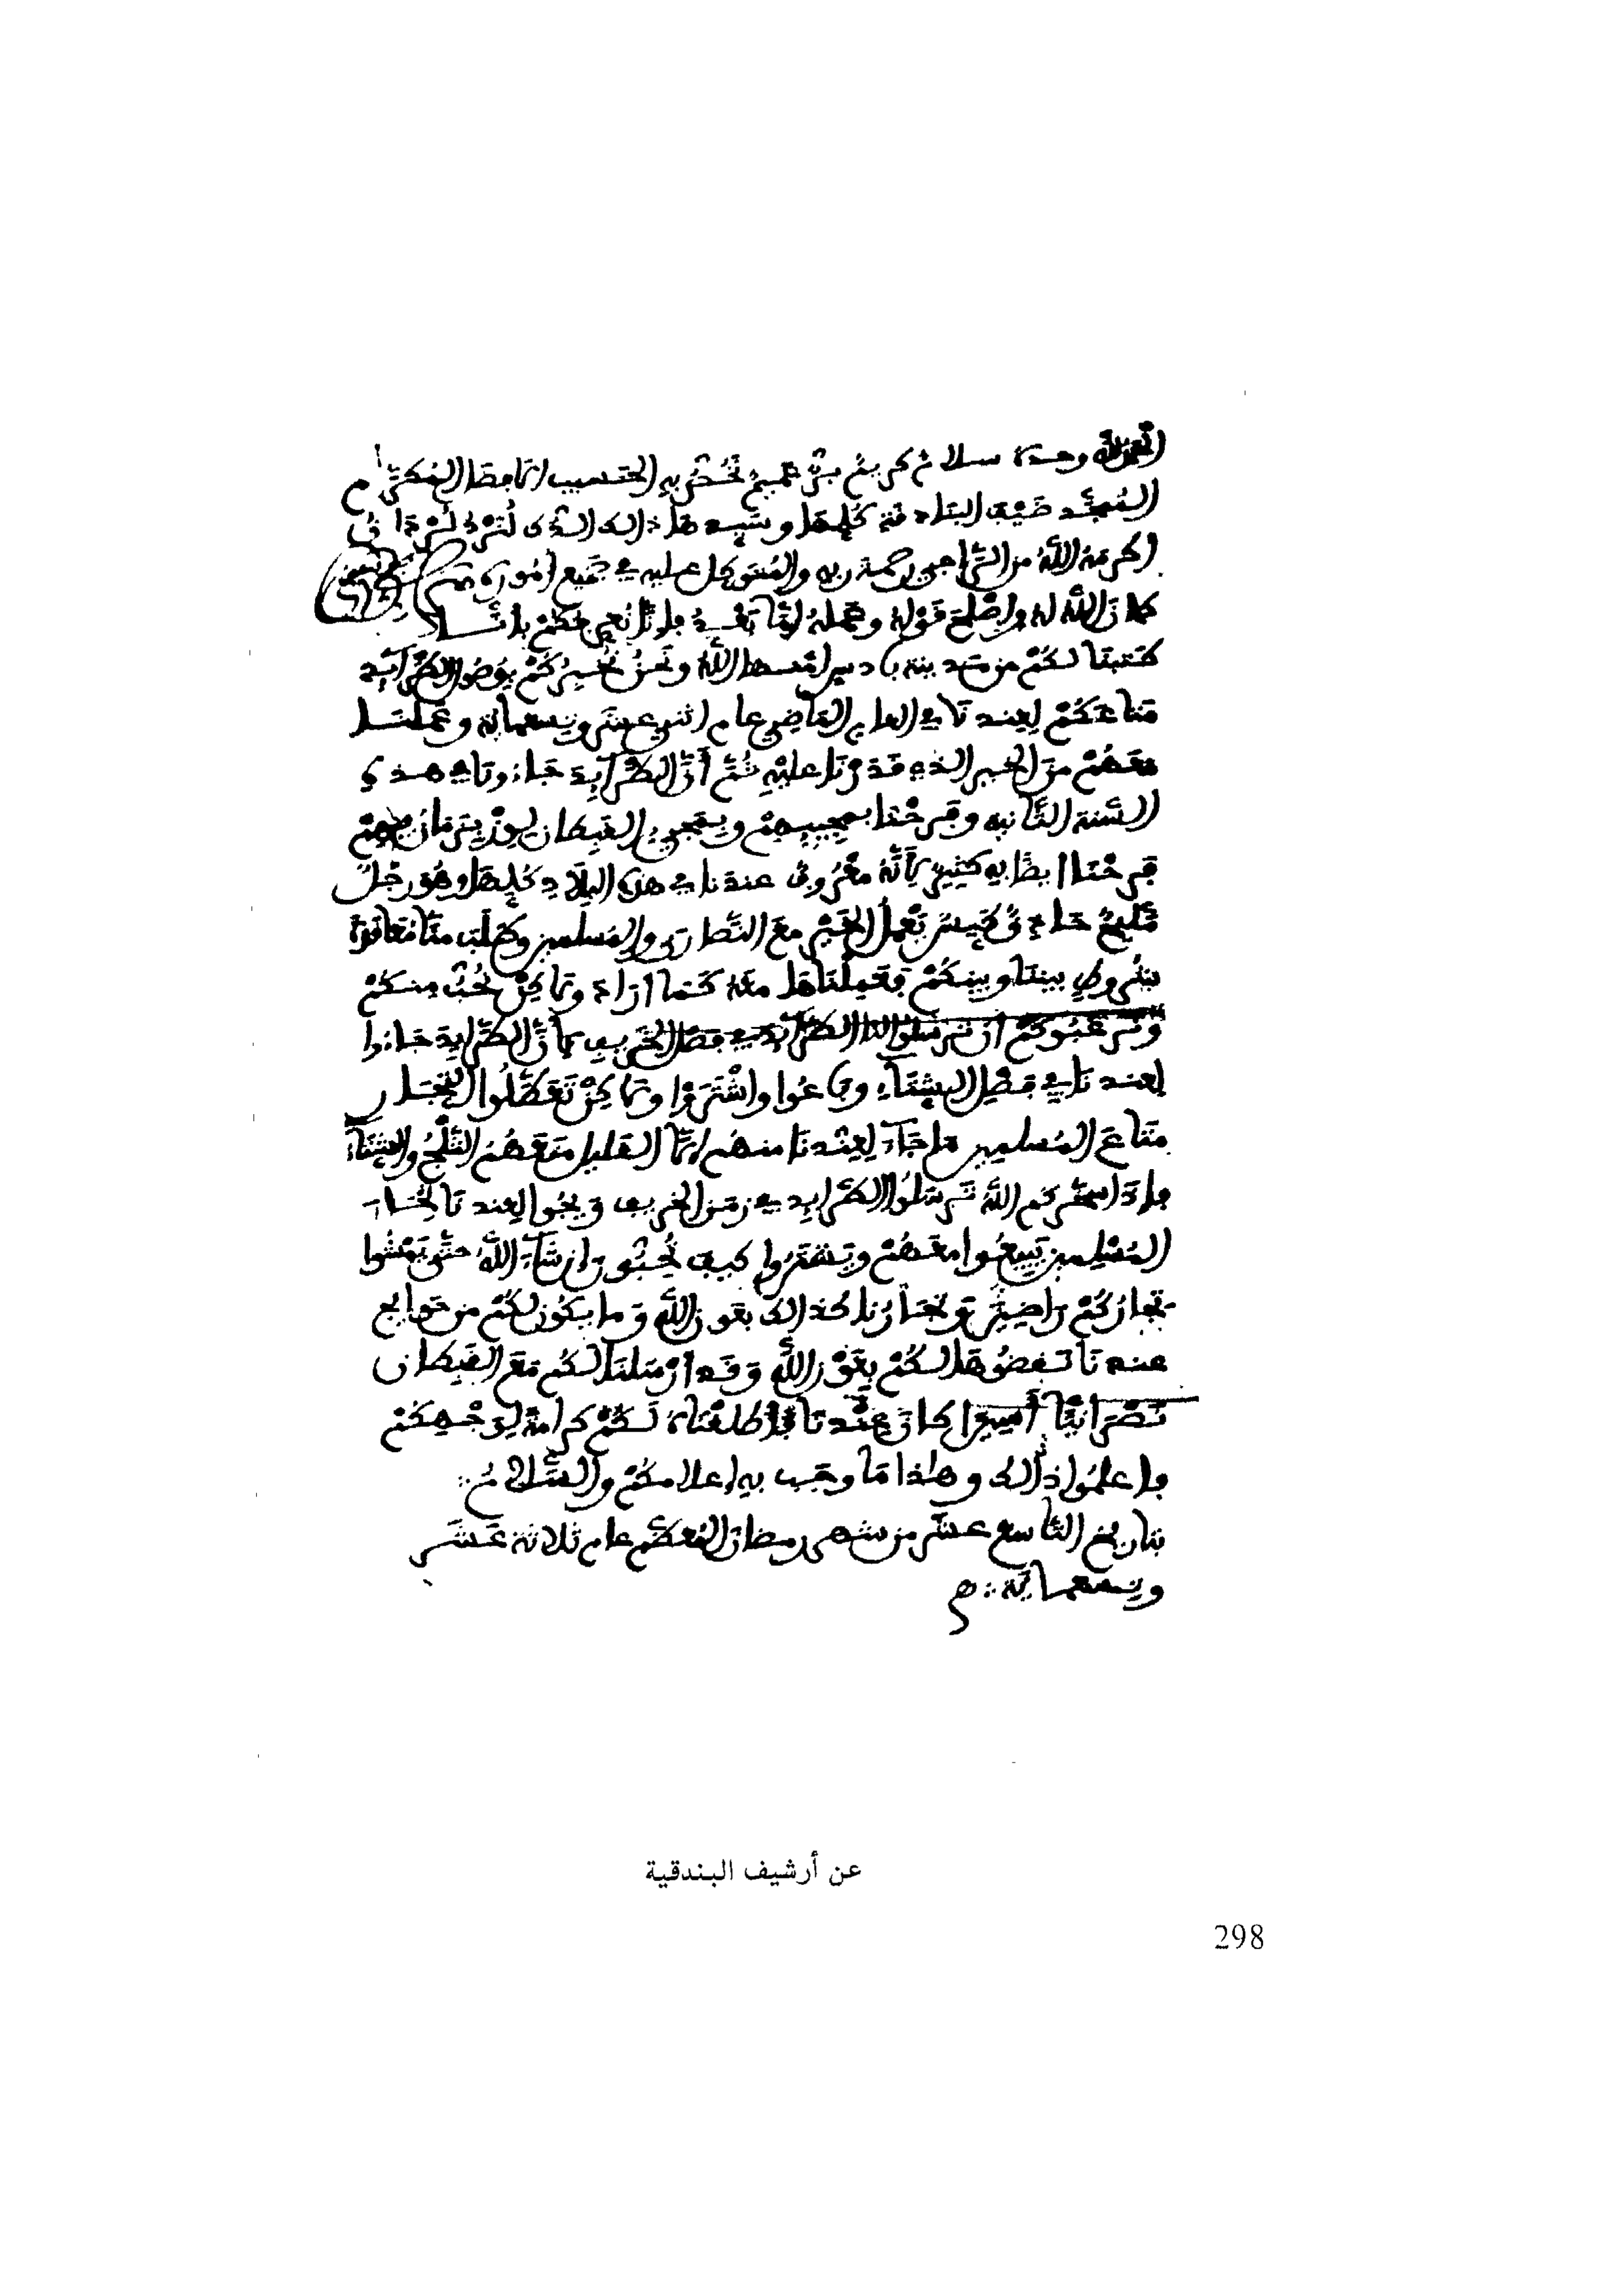 الحمد لله وحده سلام كريم بر عميم نخص به الحسيب الحافظ المكرم
المجد ضيف البنادقة كلها وسيدها ذالك الذى لنرد لنرذان
اكرمه الله من الراجى رحمة ربه والمتوكل عليه في جميع اموره
كان الله له واصلح قوله وعمله اما بعد فإنا نعرفكم بأننا
كتبنا لكم من مدينة بادس امنها الله ونحن نخبركم بوصول الطرايد
متاعكم لعندنا في العام الماضى عام اثنى عشر وتسعماية وعملنا
معهم من الخير الذى قدرنا عليه ثم أن الطرايد جاءونا في هذه
السنة الثانية وفرحنا بمجيهم وبمجى القبطان
فرحنا ايضا به كثير لأنه معروف عندنا في هذه البلاد كلها وهو رجل
مليح حاذق كيس يعمل الخير مع النصارى والمسلمين وطلب منا معاقدة
بشروط بيننا وبينكم فعملناها معه كما اراد ولاكن نحب منكم
ونرغبوكم ان ترسلوا لنا الطرايد في فصل الخريف لأن الطرايد جاءوا
لعندنا في فصل الشتاء وباعوا واشتروا ولاكن تعطلوا التجار
متاع المسلمين ما جاء لعندنا منهم إلا القليل منعهم الثلج والشتاء
فإذا سخركم الله ترسلوا الطرايد في زمن الخريف ويجوا لعندنا تجار
المسلمين تبيعوا معهم وتشتروا كيف تحبون ان شاء الله حتى يمشوا
تجاركم راضين وتجارنا كذالك بعون الله وما يكون لكم من حوايج
عندنا نقضوها لكم بعون الله وقد ارسلنا لكم مع القبطان
نصرانيا أسيرا كان عندنا فأطلقناه لكم كرامة لوجهكم
فاعلموا ذالك وهاذا ما وجب به إعلامكم والسلام
بتاريخ التاسع عشر من شهر رمضان المعظم عام ثلاثة عشر
وتسعماية
عن أرشيف البندقية
298